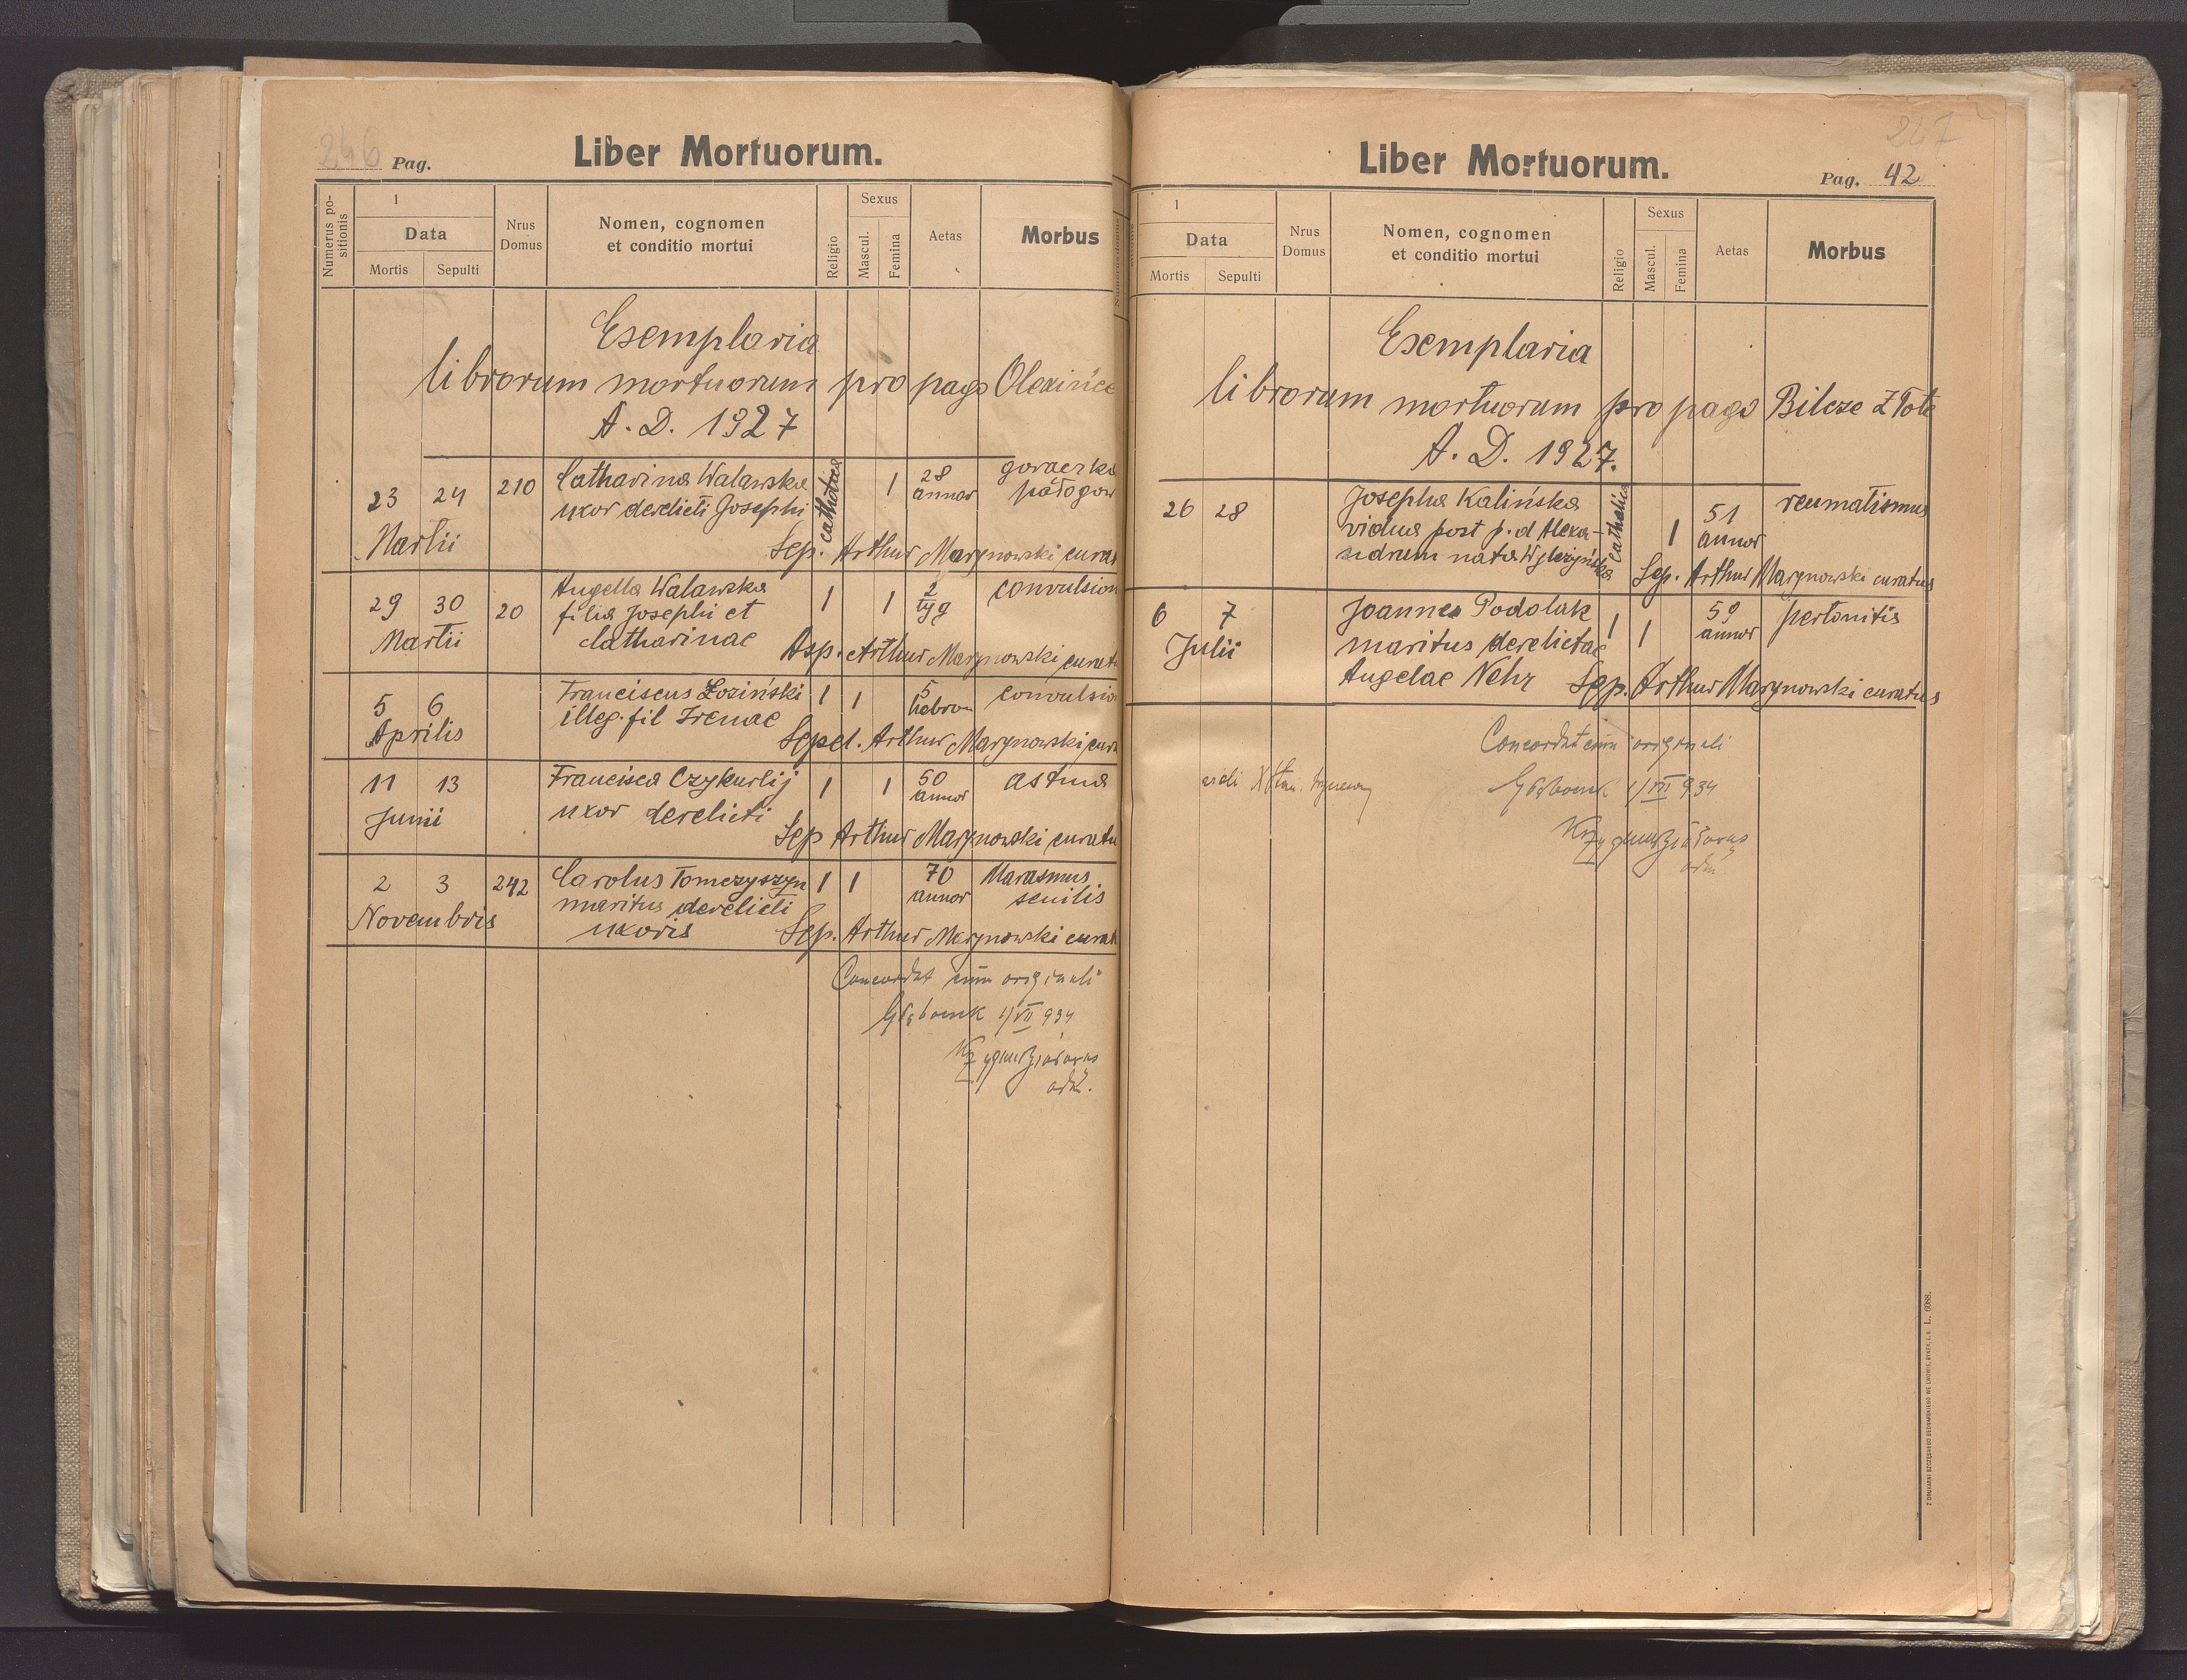 246 Pag.
Liber Mortuorum.
Numerus positionis
1
Data
Mortis Sepulti
Nrus Domus
Nomen, cognomen et conditio mortui
Religio
Sexus
Mascul. Femina
Aetas
Morbus
Exemplaria
librorum mortuorum pro pago Olexińce
A. D. 1927
23 24 210 Catharina Walawska catholica 1 28 gorączka
Martii uxor derelicti Josephi annor połogow
Sep. Arthur Marynowski curat
29 30 20 Angella Walawska 1 1 2 convulsion
Martii filia Josephi et tyg
Catharinae Asp. Arthur Marynowski curat
5 6 Franciscus Łoziński 1 1 5 convulsio
Aprilis illeg. fil Irenae
Sepel. Arthur Marynowski cura
11 13 Francisca Czykurlij 1 1 50 astma
Junii uxor derelicti annor
Sep Arthur Marynowski curatu
2 3 242 Carolus Tomczyszyn 1 1 70 Marasmus
Novembris maritus derelicti annor senilis
uxoris Sep. Arthur Marynowski curat
Concordat cum originali
1/VII 934
adm.
247
Liber Mortuorum.
Pag. 42
1
Data
Mortis Sepulti
Nrus Domus
Nomen, cognomen et conditio mortui
Religio
Sexus
Mascul. Femina
Aetas
Morbus
Exemplaria
librorum mortuorum pro pago Bilcze Złote
A. D. 1927.
26 28 Josepha Kalińska catholica 1 51 reumatismus
vidua post p. d Alexa- annor
ndrum nata
Sep. Arthur Marynowski curatus
6 7 Joannes Podolak 1 1 59 pertonitis
Julii maritus derelictae annor
Angelae Nehr Sep. Arthur Marynowski curatus
Concordat cum originali
1/VII 934
adm
Z DRUKARNI SZCZĘSNEGO BEDNARSKIEGO WE LWOWIE, RYNEK L. 9. L. 6088.